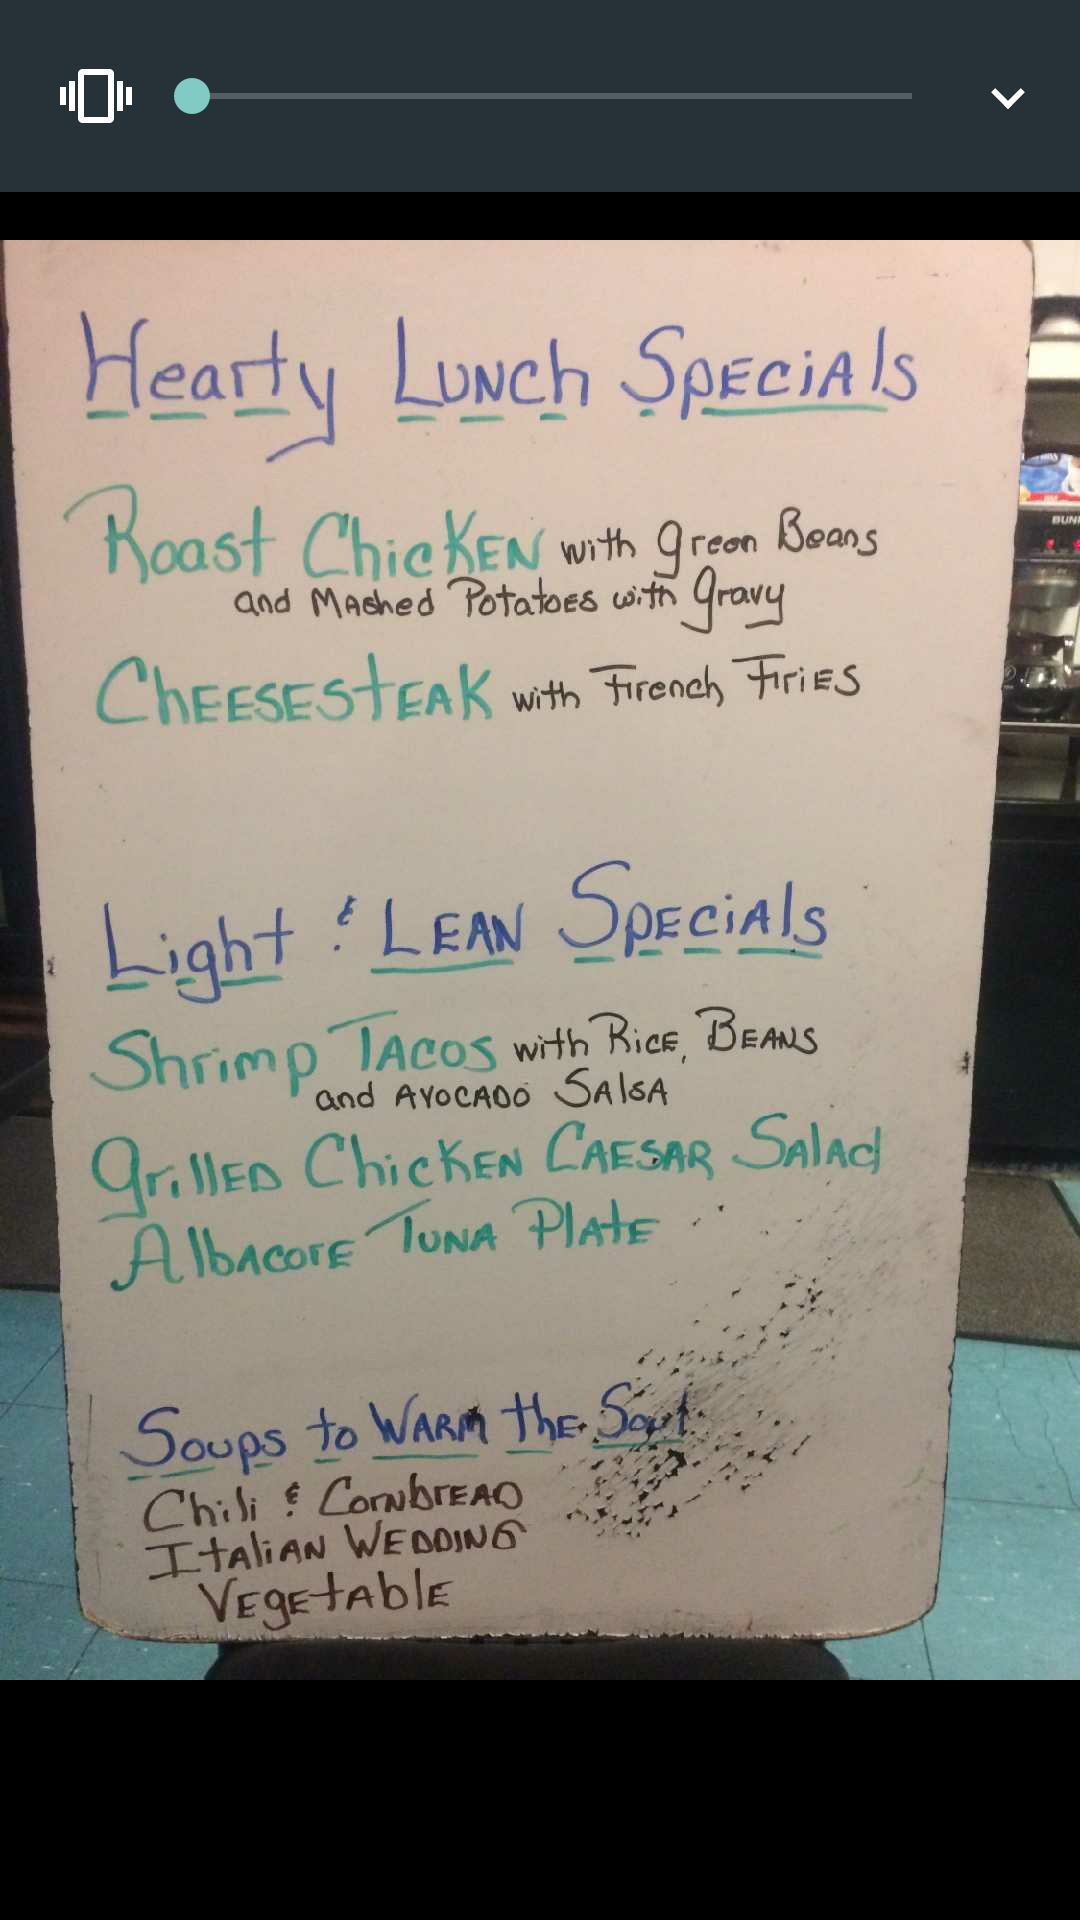 Hearty Lunch Specials
Roast Chicken with Green Beans
and Mashed Potatoes with Gravy
Cheesesteak with French Fries
Light & Lean Specials
Shrimp Tacos with Rice, Beans
and Avocado Salsa
Grilled Chicken Caesar Salad
Albacore Tuna Plate
Soups to Warm the Soul
Chili & Cornbread
Italian Wedding
Vegetable
BUN